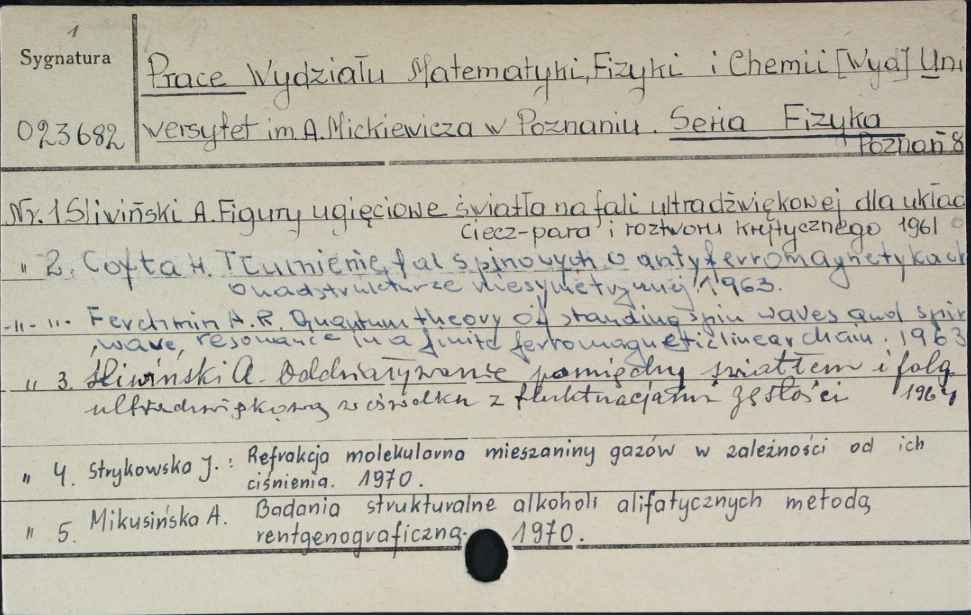 1
Sygnatura
023682
Prace Wydziału Matematyki, Fizyki i Chemii [Wyd] Uni
wersytet im. A. Mickiewicza w Poznaniu. Seria Fizyka
Poznań 8
Nr. 1 Śliwiński A. Figury ugięciowe światła na fali ultradźwiękowej dla układ
ciecz-para i roztworu krytycznego 1961
" 2. Cofta H. Tłumienie fal spinowych o antyferromagnetykach
o nadstrukturze niesymetrycznej 1963.
-"- "- Ferchmin A.R. Quantum theory of standing spin waves and spin
wave, resonance in a finite ferromagnetic linear chain. 1963
" 3. Śliwiński A. Oddziaływanie pomiędzy światłem i falą
ultradźwiękową w ośrodku z fluktuacjami gęstości 1964
" 4. Strykowska J.: Refrakcja molekularna mieszaniny gazów w zależności od ich
ciśnienia. 1970.
" 5. Mikusińska A. Badania strukturalne alkoholi alifatycznych metodą
rentgenograficzną. 1970.